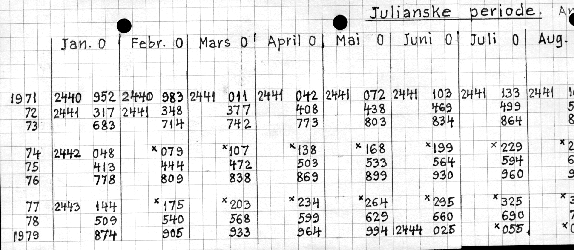 Julianske periode.
Jan. 0 Febr. 0 Mars 0 April 0 Mai 0 Juni 0 Juli 0 Aug.
1971 2440 952 2440 983 2441 011 2441 042 2441 072 2441 103 2441 133 2441
72 2441 317 2441 348 377 408 438 469 499
73 683 714 742 773 803 834 864
74 2442 048 ×079 ×107 ×138 ×168 ×199 ×229
75 413 444 472 503 533 564 594
76 778 809 838 869 899 930 960
77 2443 144 ×175 ×203 ×234 ×264 ×295 ×325
78 509 540 568 599 629 660 690
1979 874 905 933 964 994 2444 025 ×055